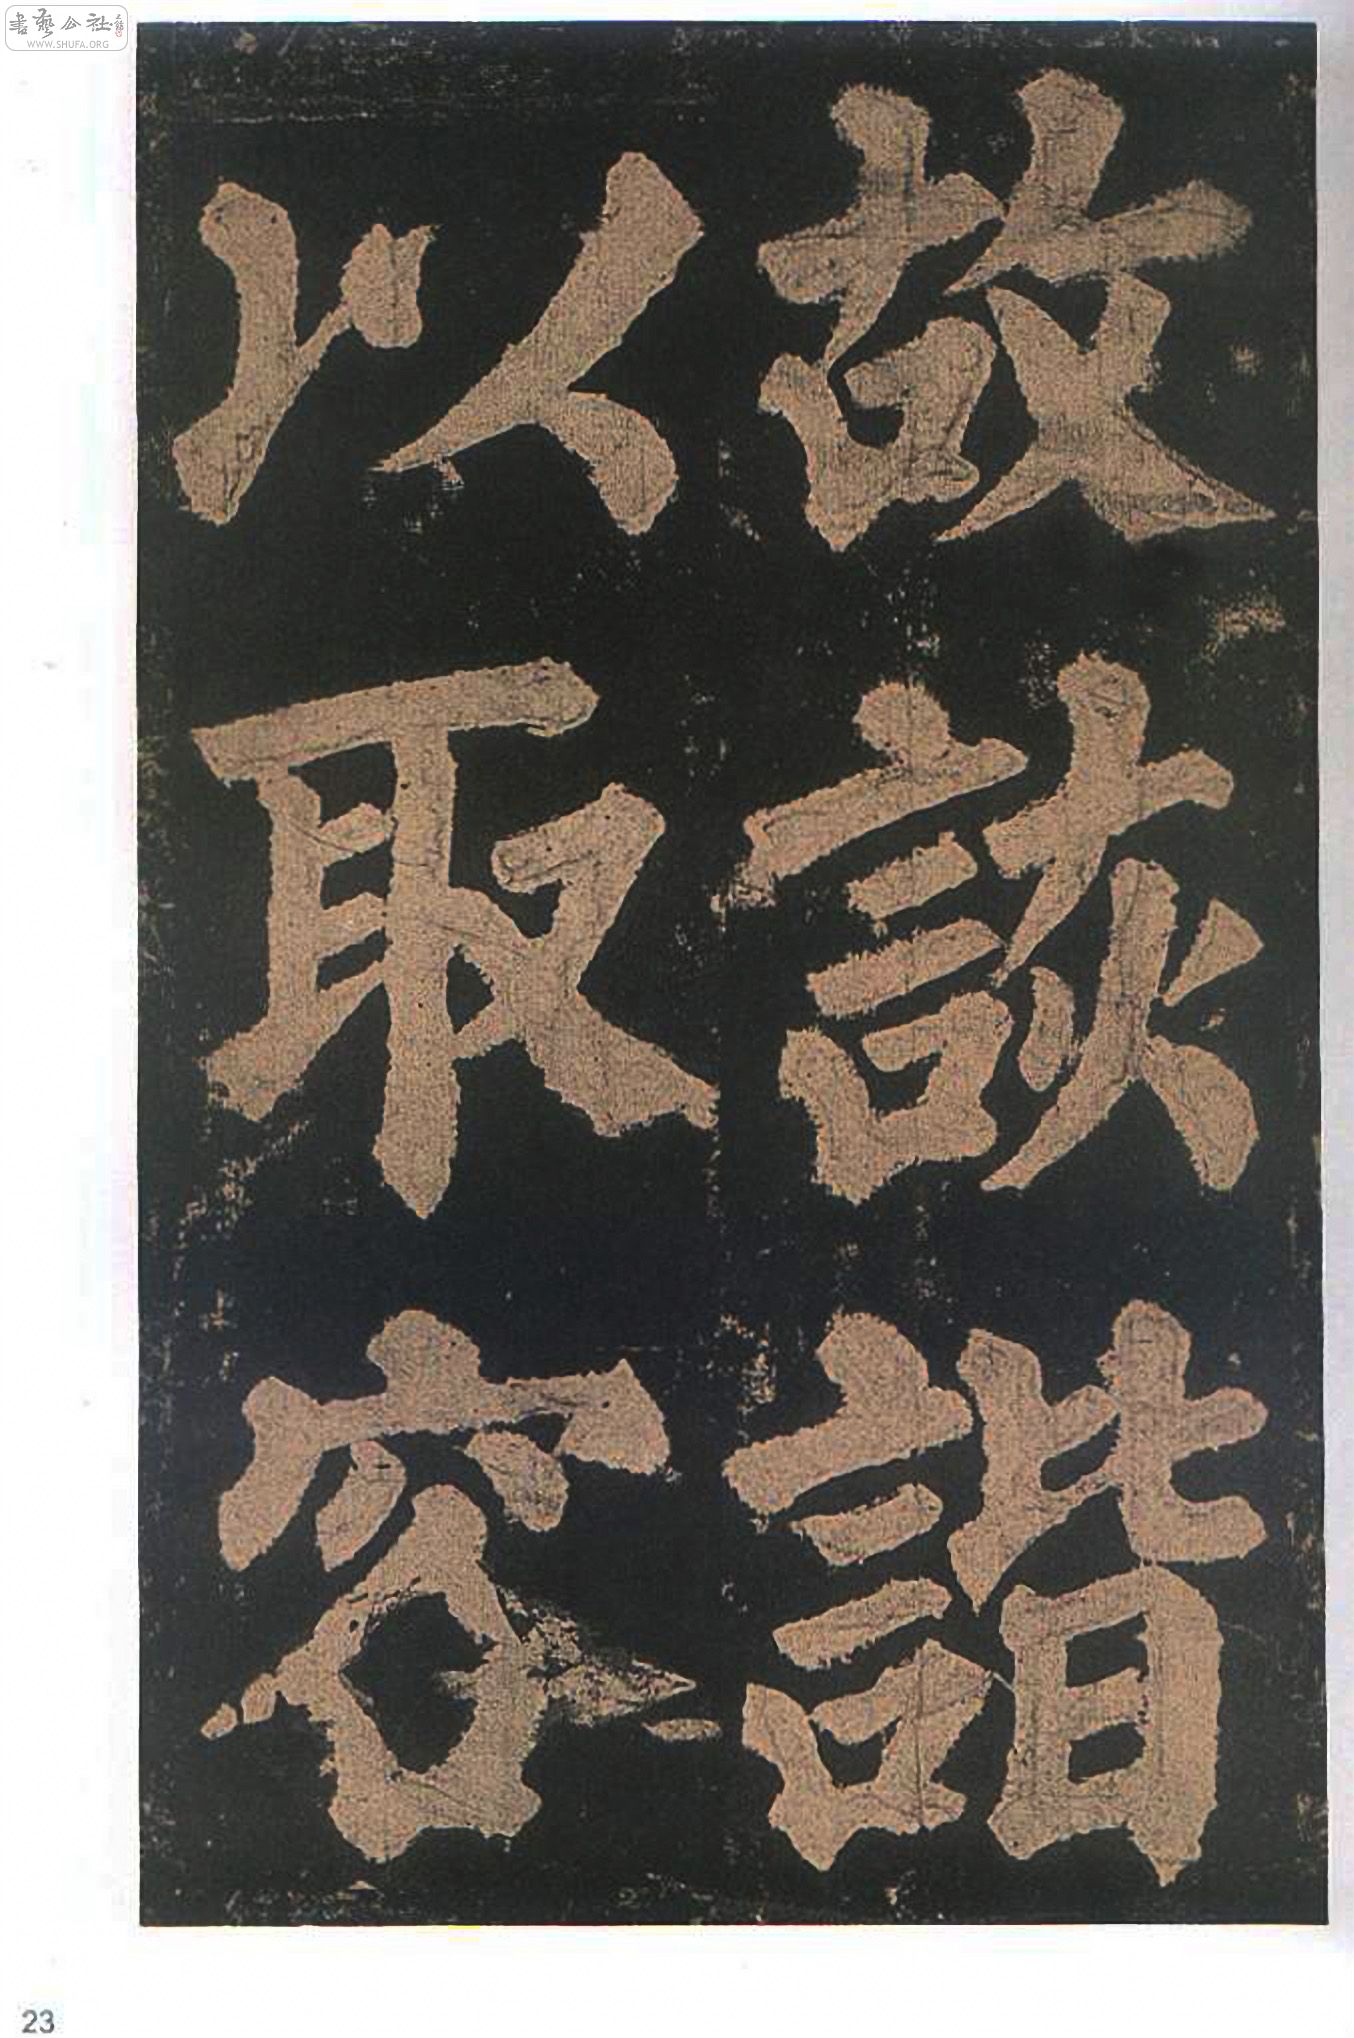 書藝公社
WWW.SHUFA.ORG
故詼諧
以取容
23